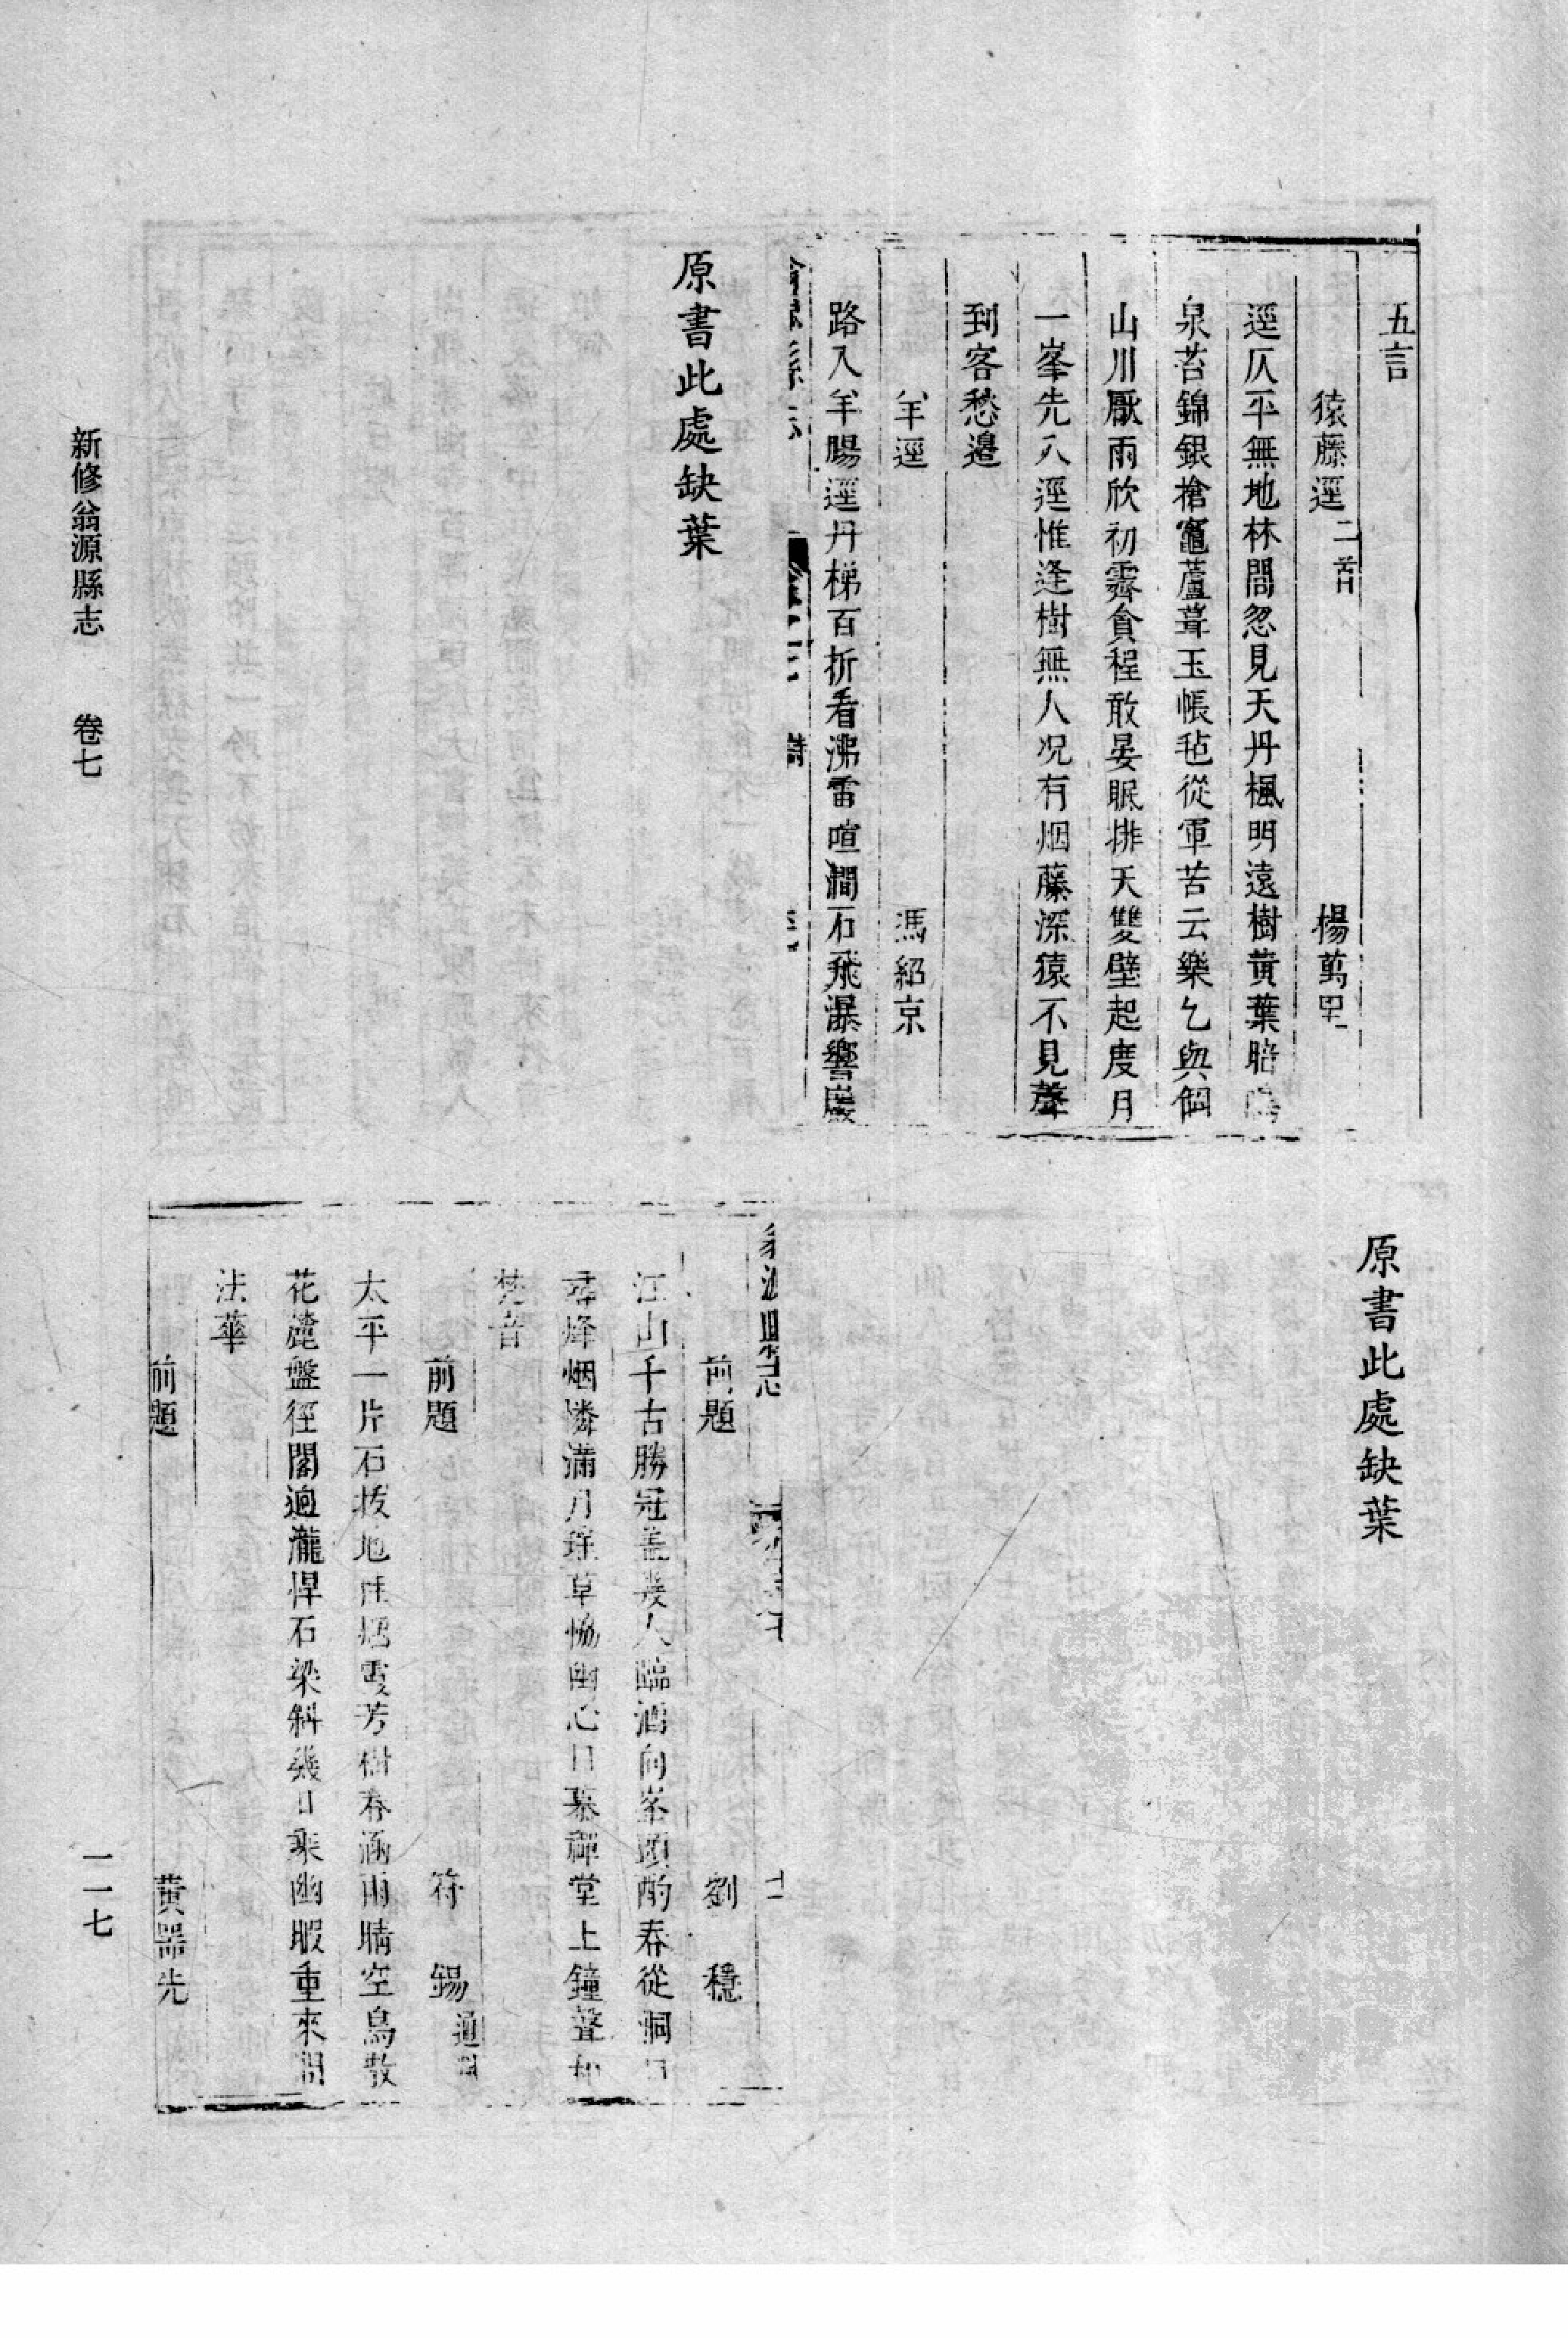 五言
猿藤逕二首 楊萬里
逕仄平無地林開忽見天丹楓明遠樹黃葉暗鳴
泉苔錦銀槍竈蘆葺玉帳毡從軍苦云樂乞與個
山川厭雨欣初霽貪程敢晏眠排天雙壁起度月
一峯先入逕惟逢樹無人况有烟藤深猿不見聲
到客愁邉
羊逕 馮紹京
路入羊腸逕丹梯百折看沸雷喧澗石飛瀑響巖
翁源縣志 卷之七 詩
原書此處缺葉
原書此處缺葉
翁源縣志 卷之七 十一
前題 劉穩
江山千古勝冠盖幾人臨酒向峯頭酌春從洞口
尋烽烟憐滿月瑤草恊幽心日暮禪堂上鐘聲和
梵音
前題 符錫通判
太平一片石拔地 霞芳樹春涵雨晴空鳥散
花麓盤徑閣逈瀧悍石梁斜幾日乘幽暇重來問
法華
前題 黃器先
新修翁源縣志 卷七
一一七